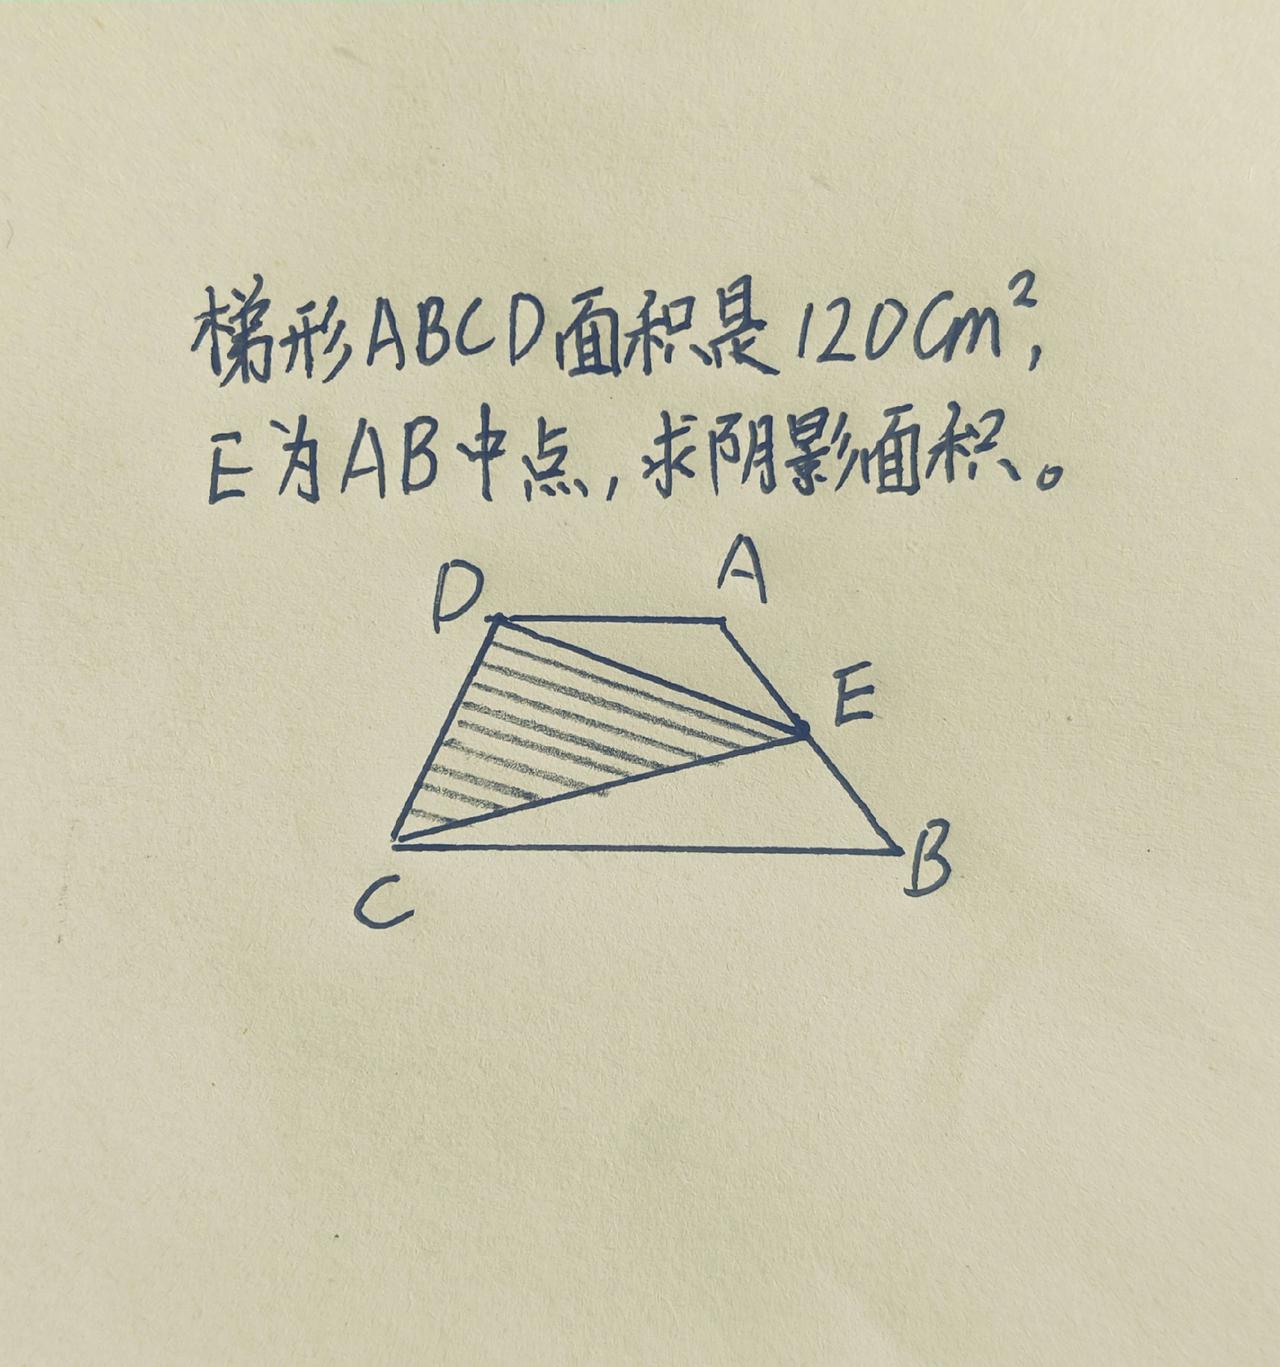 梯形ABCD面积是120Cm²,
E为AB中点,求阴影面积。
D A
E
C B